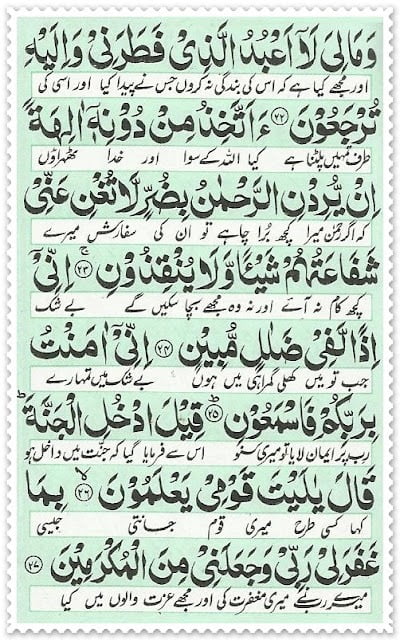 وَمَالِیَ لَاۤ اَعْبُدُ الَّذِیْ فَطَرَنِیْ وَاِلَیْهِ
اور مجھے کیا ہے کہ اس کی بندگی نہ کروں جس نے پیدا کیا اور اسی کی
تُرْجَعُوْنَ ﴿۲۲﴾ ءَاَتَّخِذُ مِنْ دُوْنِهٖۤ اٰلِهَةً
طرف تمہیں پلٹنا ہے کیا اللہ کے سوا اور خدا ٹھہراؤں
اِنْ یُّرِدْنِ الرَّحْمٰنُ بِضُرٍّ لَّا تُغْنِ عَنِّیْ
کہ اگر رحمٰن میرا کچھ برا چاہے تو ان کی سفارش میرے
شَفَاعَتُهُمْ شَیْـًٔا وَّلَا یُنْقِذُوْنِ ﴿۲۳﴾ اِنِّیْۤ
کچھ کام نہ آئے اور نہ وہ مجھے بچا سکیں گے بے شک
اِذًا لَّفِیْ ضَلٰلٍ مُّبِیْنٍ ﴿۲۴﴾ اِنِّیْۤ اٰمَنْتُ
جب تو میں کھلی گمراہی میں ہوں بے شک میں تمہارے
بِرَبِّكُمْ فَاسْمَعُوْنِ ﴿۲۵﴾ قِیْلَ ادْخُلِ الْجَنَّةَ ؕ
رب پر ایمان لایا تو میری سنو اس سے فرمایا گیا کہ جنّت میں داخل ہو
قَالَ یٰلَیْتَ قَوْمِیْ یَعْلَمُوْنَ ﴿۲۶﴾ بِمَا
کہا کسی طرح میری قوم جانتی جیسی
غَفَرَلِیْ رَبِّیْ وَجَعَلَنِیْ مِنَ الْمُكْرَمِیْنَ ﴿۲۷﴾
میرے رب نے میری مغفرت کی اور مجھے عزت والوں میں کیا